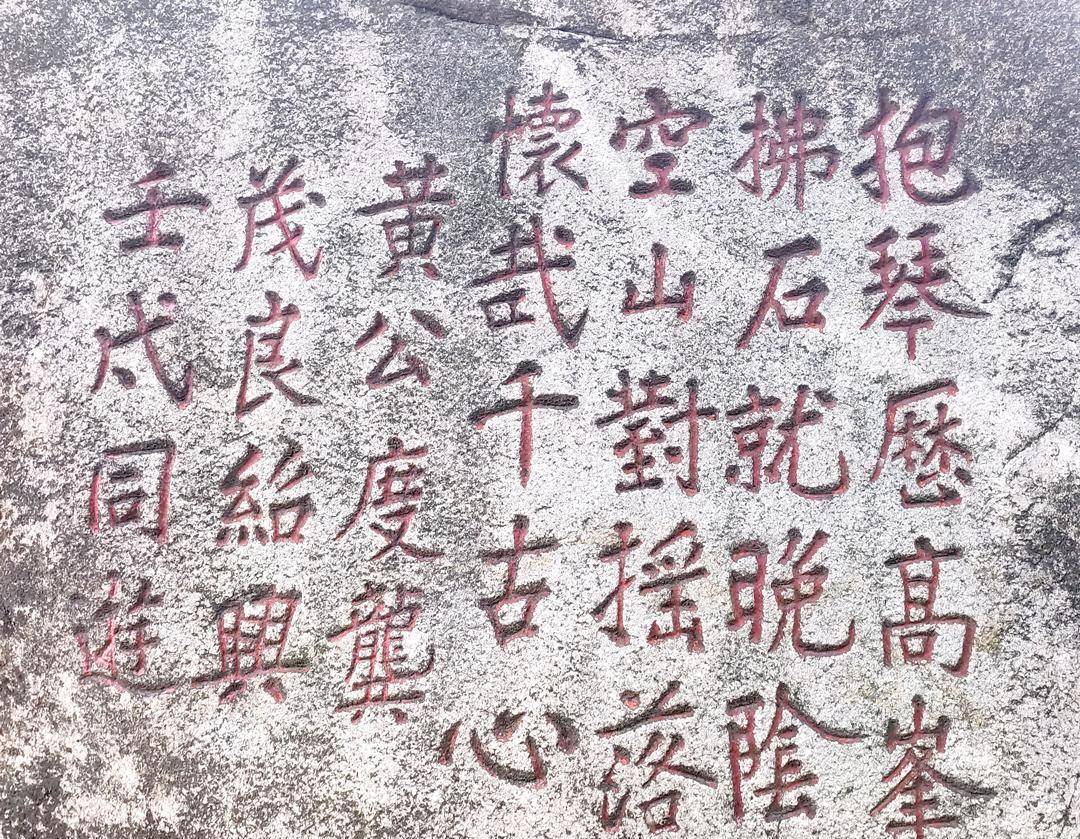 抱琴歷高峯
拂石就晚陰
空山對揺落
懷哉千古心
黃公度龔
茂良紹興
壬戌同遊